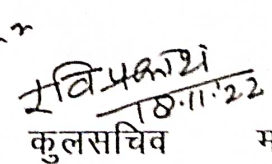 रविप्रकाश
18.11.22
कुलसचिव